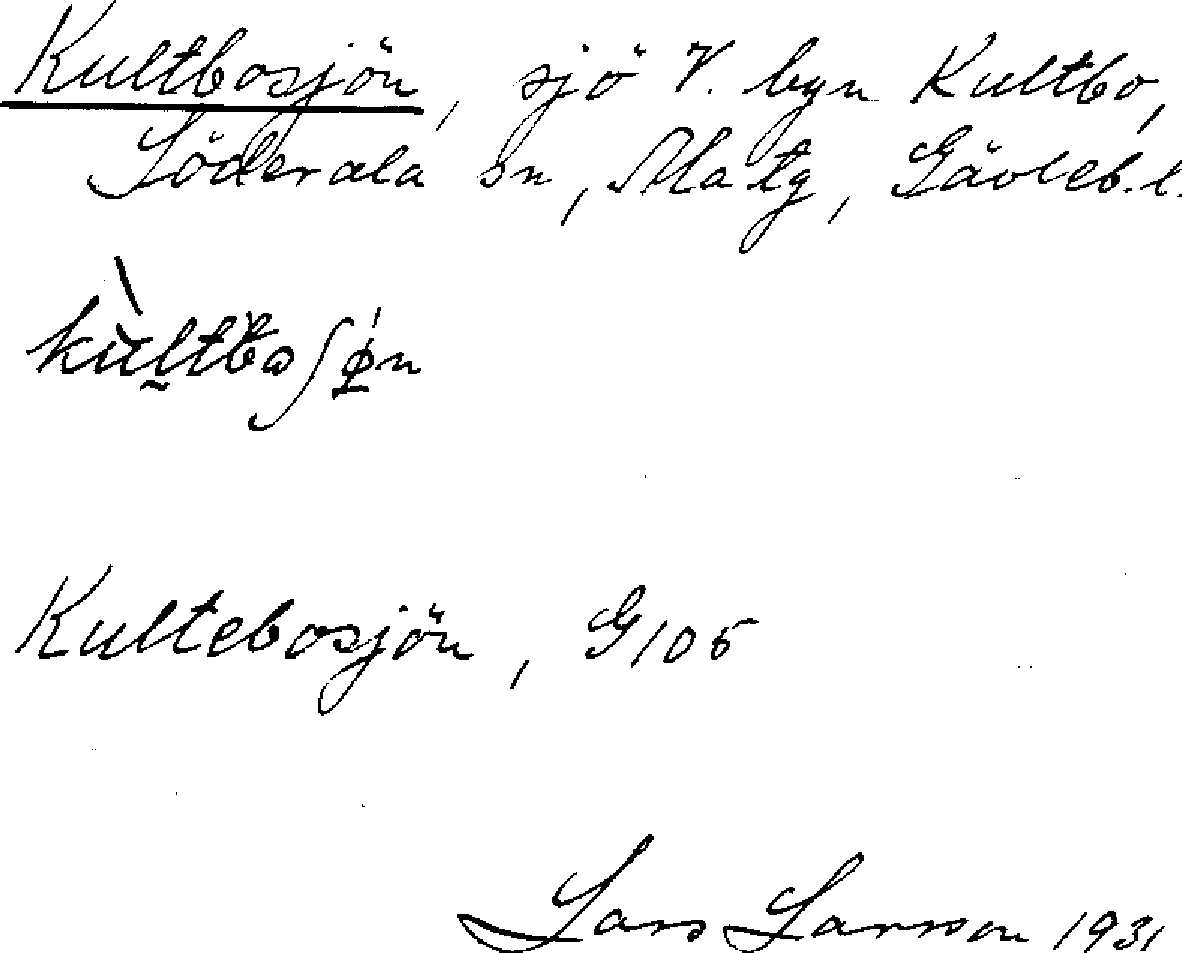 Kultbosjön, sjö V. byn Kultbo,
Söderala sn, Ala tg, Gävleb. l.
kùltboʃø̱n
Kultebosjön, G105
Lars Larsson 1931